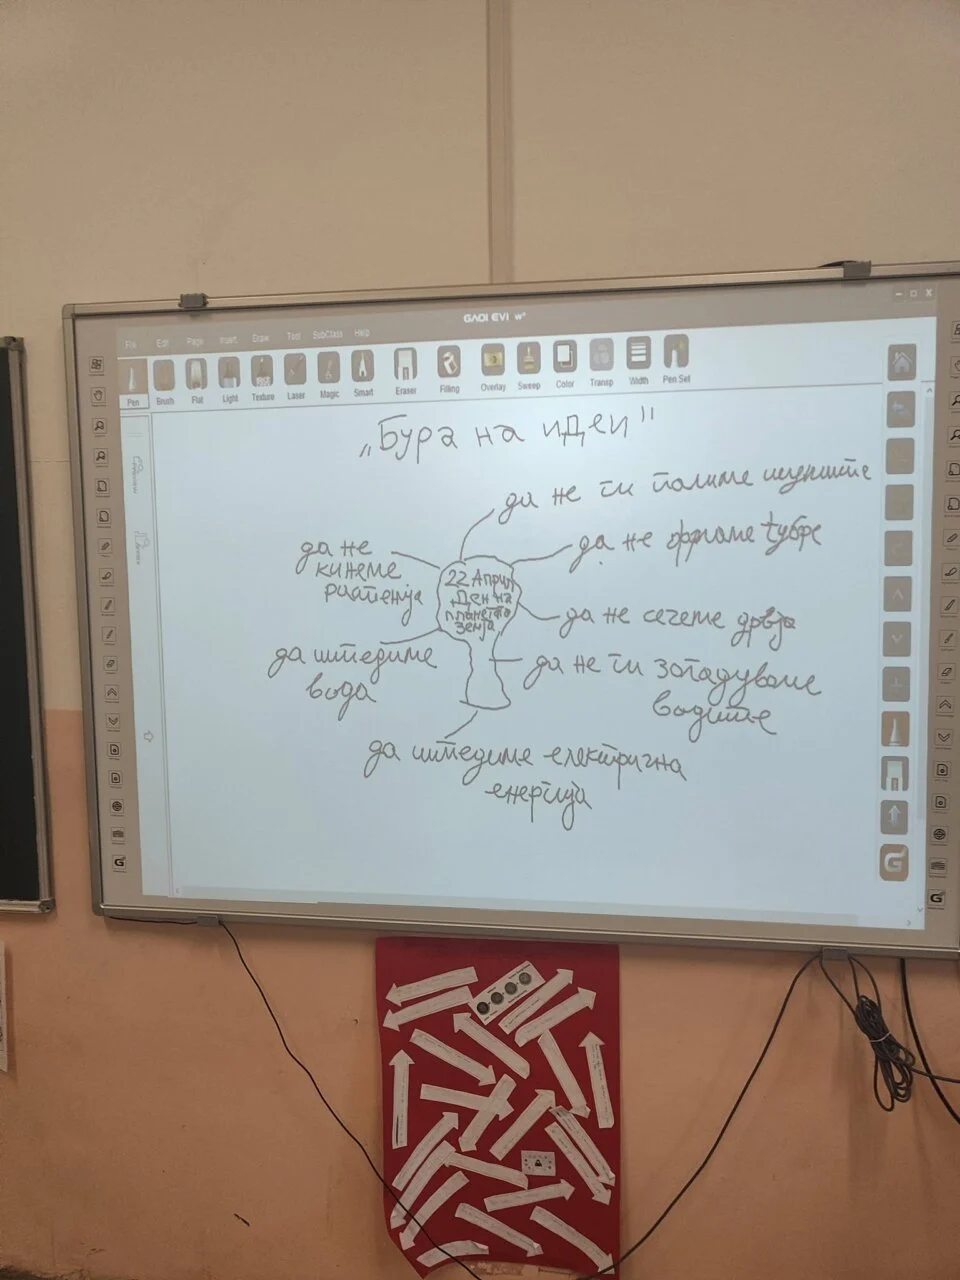 GAOI EVI w°
File Edit Page Insert Draw Tool SubClass Help
Pen Brush Flat Light Texture Laser Magic Smart Eraser Filling Overlay Sweep Color Transp Width Pen Set
„Бура на идеи"
да не ги палиме шумите
да не фрламе ѓубре
да не сечеме дрвја
да не ги загадуваме
водите
да штедиме електрична
енергија
да штедиме
вода
да не
кинеме
растенија
22 Април
Ден на
планетата
земја